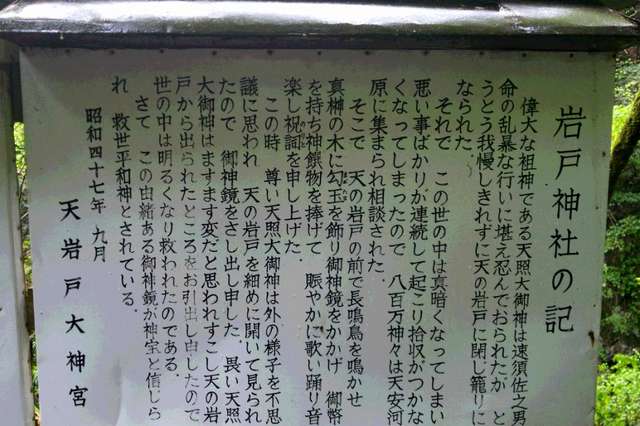 岩戸神社の記
偉大な祖神である天照大御神は速須佐之男
命の乱暴な行いに堪え忍んでおられたが と
うとう我慢しきれずに天の岩戸に閉じ籠りに
なられた。
それで この世の中は真暗くなってしまい
悪い事ばかりが連続して起こり拾収がつかな
くなってしまったので 八百万神々は天安河
原に集まられ相談された。
そこで 天の岩戸の前で長鳴鳥を鳴かせ
真榊の木に勾玉を飾り御神鏡をかかげ 御幣
を持ち神饌物を捧げて 賑やかに歌い踊り音
楽し祝詞を申し上げた。
この時 尊い天照大御神は外の様子を不思
議に思われ 天の岩戸を細めに開いて見られ
たので 御神鏡をさし出し申した。畏い天照
大御神はますます変だと思われすこし天の岩
戸から出られたところをお引出し申したので
世の中は明るくなり救われたのである。
さて この由緒ある御神鏡が神宝と信じら
れ 救世平和神とされている。
昭和四十七年 九月
天岩戸大神宮